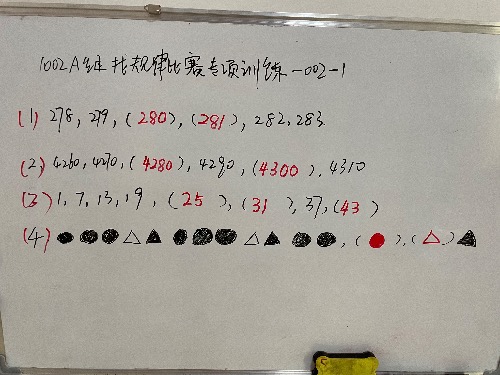 1002A组找规律比赛专项训练-002-1
(1) 278, 279, (280), (281), 282, 283
(2) 4260, 4270, (4280), 4290, (4300), 4310
(3) 1, 7, 13, 19, (25), (31), 37, (43)
(4) ●●●△▲ ●●●△▲ ●●, (●), (△)▲